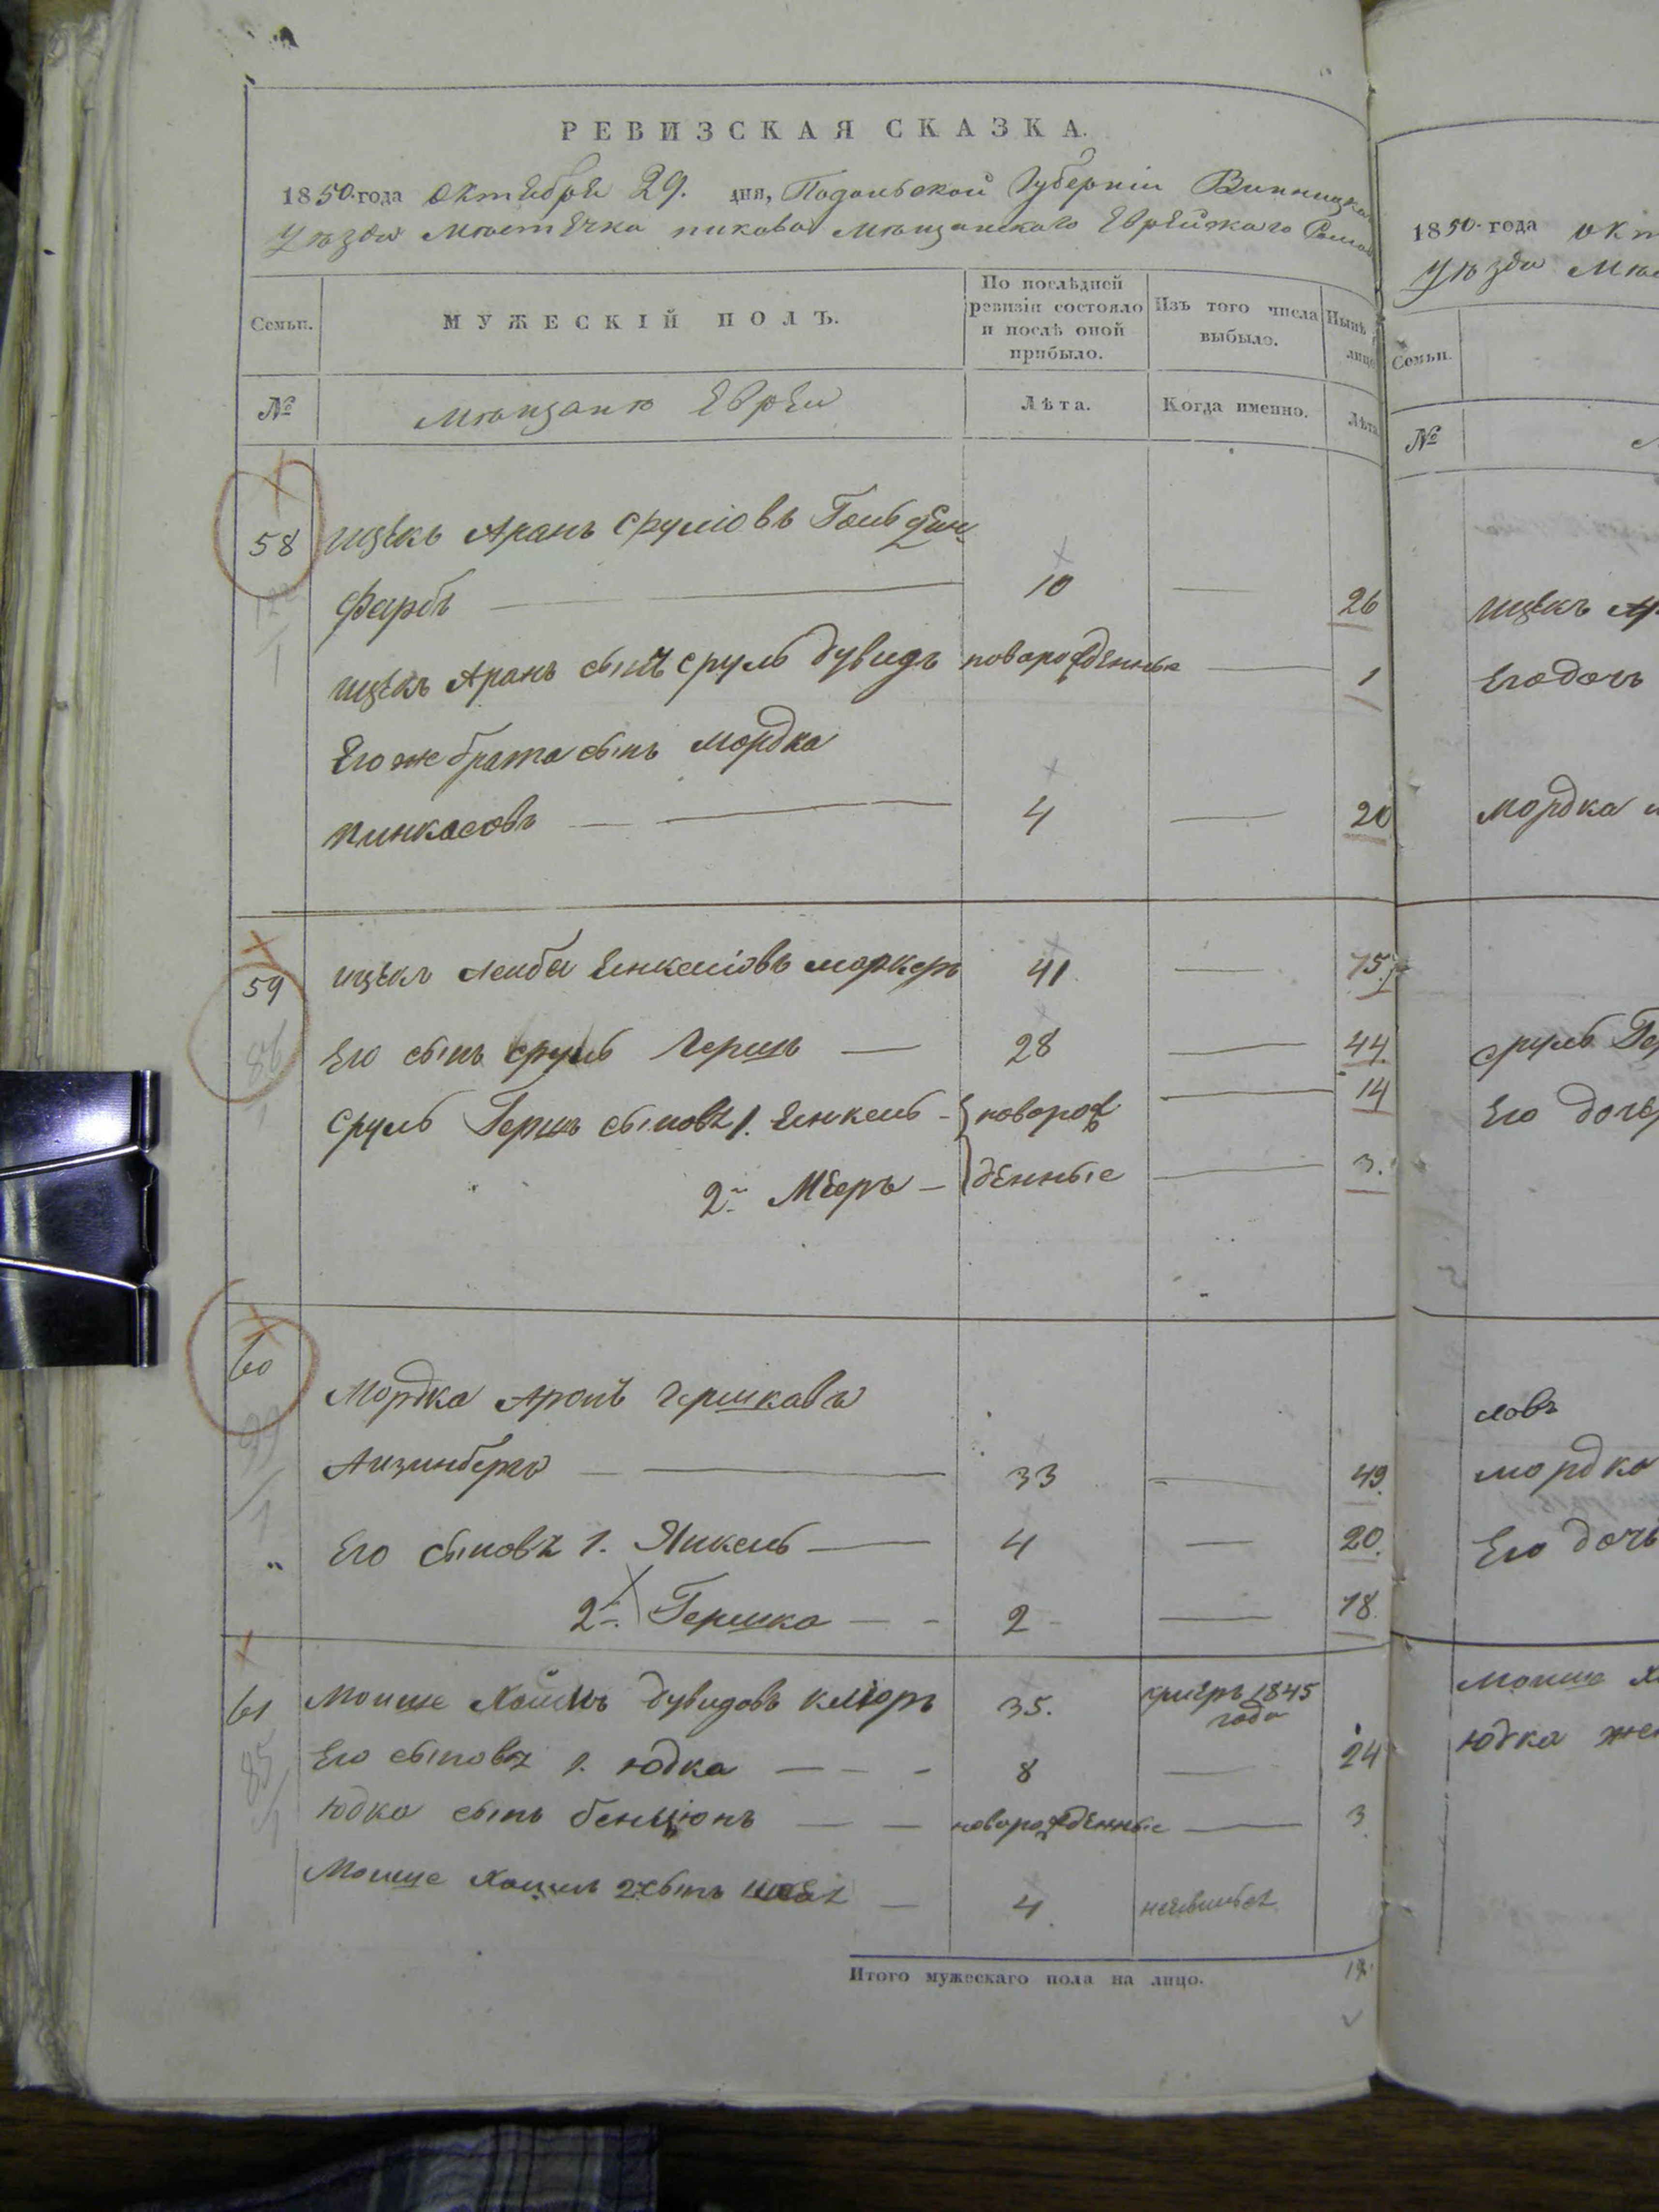 РЕВИЗСКАЯ СКАЗКА.
1850 года Октября 29. дня, Подольской Губерніи Винницкаго
Уѣзда Мѣстечка пикова Мѣщанскаго Еврейскаго
Семьи.
МУЖЕСКІЙ ПОЛЪ.
По послѣдней ревизіи состояло и послѣ оной прибыло.
Изъ того числа выбыло.
Нынѣ на лицо
№
мѣщанѣ Евреи
Лѣта.
Когда именно.
Лѣта
58 ицекъ Аранъ Сруліовъ Гольден
фарбъ — 10 — 26
ицекъ Аранъ сынъ сруль дувидъ новорожденные — 1
Его же брата сынъ мордка
пинкасовъ — 4 — 20
59 ицекъ Лейба Енкеліовъ маркеръ 41 — 75
Его сынъ сруль Гершъ — 28 — 44
сруль Гершъ сыновя 1. Енкель - новорож — 14
2. Мееръ — денные — 3.
60
Мордка Аронъ Гершкавъ
Аизинбергъ — 33 — 49
" Его сыновя 1. Янкель — 4 — 20
2. Гершко — - 2 - — 18
61 Моише Хаимъ дувидовъ 35. умеръ 1845 года
Его сыновя 1. юдка — - - 8 — 24
юдка сынъ бенціонъ — — новорожденные — 3
Моише Хаимъ 2 сынъ — 4
Итого мужескаго пола на лицо.
1850 года окт
Уѣзда Мѣс
Семьи.
№
ицекъ Ар
Его дочь
мордка
сруль Гер
Его дочер
ловъ
мордко
Его дочь
моише Х
юдка же